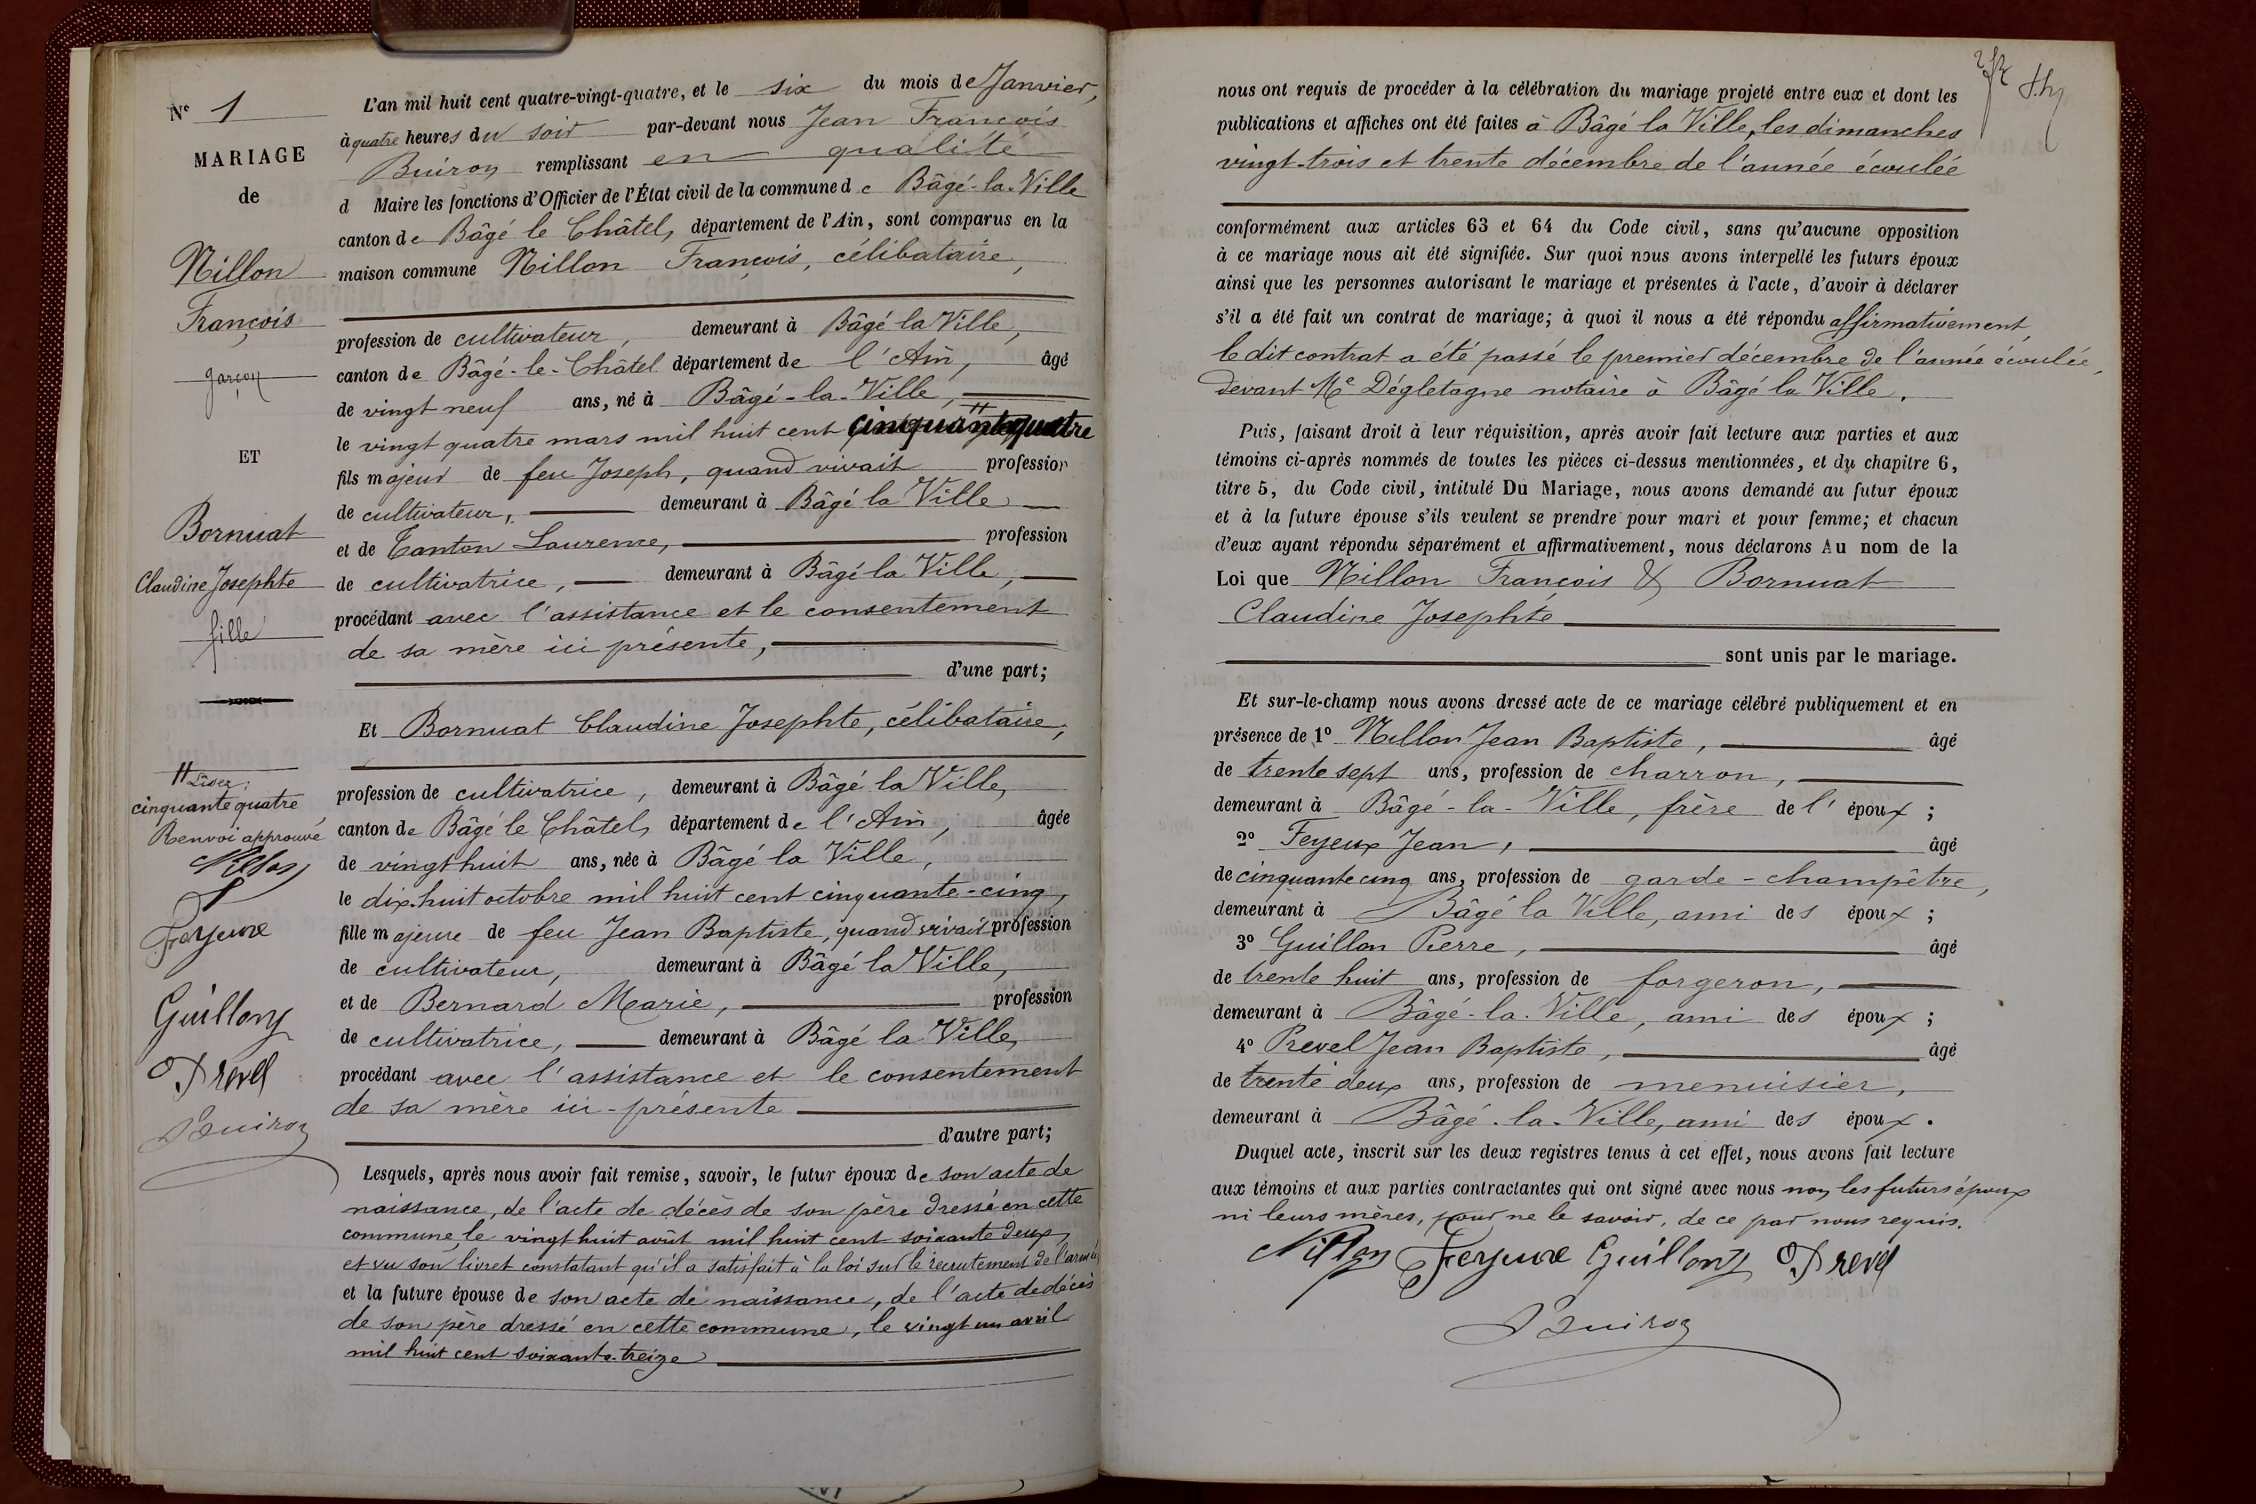 N° 1
MARIAGE
de
Nillon
François
garçon
ET
Bornuat
Claudine Josephte
fille
H Liser:
cinquante quatre
Renvoi approuvé
Nillon
Feyeux
Guillon
Prevel
Buiron
L'an mil huit cent quatre-vingt-quatre, et le six du mois de Janvier,
à quatre heures du soir par-devant nous Jean François
Buiron remplissant en qualité
d Maire les fonctions d'Officier de l'État civil de la commune de Bâgé-la-Ville
canton de Bâgé le Châtel, département de l'Ain, sont comparus en la
maison commune Nillon François, célibataire,
profession de cultivateur, demeurant à Bâgé la Ville,
canton de Bâgé-le-Châtel département de l'Ain, âgé
de vingt neuf ans, né à Bâgé-la-Ville,
le vingt quatre mars mil huit cent cinquante quatre H
fils majeur de feu Joseph, quand vivait profession
de cultivateur, demeurant à Bâgé la Ville
et de Tanton Laurence, profession
de cultivatrice, demeurant à Bâgé la Ville,
procédant avec l'assistance et le consentement
de sa mère ici présente,
d'une part;
Et Bornuat Claudine Josephte, célibataire,
profession de cultivatrice, demeurant à Bâgé la Ville,
canton de Bâgé le Châtel, département de l'Ain, âgée
de vingt huit ans, née à Bâgé la Ville,
le dix-huit octobre mil huit cent cinquante-cinq,
fille majeure de feu Jean Baptiste, quand vivait profession
de cultivateur, demeurant à Bâgé la Ville,
et de Bernard Marie, profession
de cultivatrice, demeurant à Bâgé la Ville,
procédant avec l'assistance et le consentement
de sa mère ici-présente
d'autre part;
Lesquels, après nous avoir fait remise, savoir, le futur époux de son acte de
naissance, de l'acte de décès de son père dressé en cette
commune, le vingt huit août mil huit cent soixante deux,
et vu son livret constatant qu'il a satisfait à la loi sur le recrutement de l'armée,
et la future épouse de son acte de naissance, de l'acte de décès
de son père dressé en cette commune, le vingt un avril
mil huit cent soixante-treize
nous ont requis de procéder à la célébration du mariage projeté entre eux et dont les
publications et affiches ont été faites à Bâgé la Ville, les dimanches
vingt-trois et trente décembre de l'année écoulée
conformément aux articles 63 et 64 du Code civil, sans qu'aucune opposition
à ce mariage nous ait été signifiée. Sur quoi nous avons interpellé les futurs époux
ainsi que les personnes autorisant le mariage et présentes à l'acte, d'avoir à déclarer
s'il a été fait un contrat de mariage; à quoi il nous a été répondu affirmativement,
le dit contrat a été passé le premier décembre de l'année écoulée,
devant Me Dégletagne notaire à Bâgé la Ville.
Puis, faisant droit à leur réquisition, après avoir fait lecture aux parties et aux
témoins ci-après nommés de toutes les pièces ci-dessus mentionnées, et du chapitre 6,
titre 5, du Code civil, intitulé Du Mariage, nous avons demandé au futur époux
et à la future épouse s'ils veulent se prendre pour mari et pour femme; et chacun
d'eux ayant répondu séparément et affirmativement, nous déclarons Au nom de la
Loi que Nillon François & Bornuat
Claudine Josephte
sont unis par le mariage.
Et sur-le-champ nous avons dressé acte de ce mariage célébré publiquement et en
présence de 1° Nillon Jean Baptiste, âgé
de trente sept ans, profession de charron,
demeurant à Bâgé-la-Ville, frère de l'époux;
2° Feyeux Jean, âgé
de cinquante cinq ans, profession de garde-champêtre,
demeurant à Bâgé la Ville, ami des époux;
3° Guillon Pierre, âgé
de trente huit ans, profession de forgeron,
demeurant à Bâgé-la-Ville, ami des époux;
4° Prevel Jean Baptiste, âgé
de trente deux ans, profession de menuisier,
demeurant à Bâgé-la-Ville, ami des époux.
Duquel acte, inscrit sur les deux registres tenus à cet effet, nous avons fait lecture
aux témoins et aux parties contractantes qui ont signé avec nous non les futurs époux
ni leurs mères, pour ne le savoir, de ce par nous requis.
Nillon Feyeux Guillon Prevel
Buiron